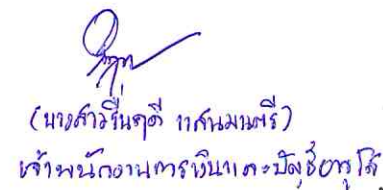 (นางสาวรื่นฤดี แสนมนตรี)
เจ้าพนักงานการเงินและบัญชีอาวุโส